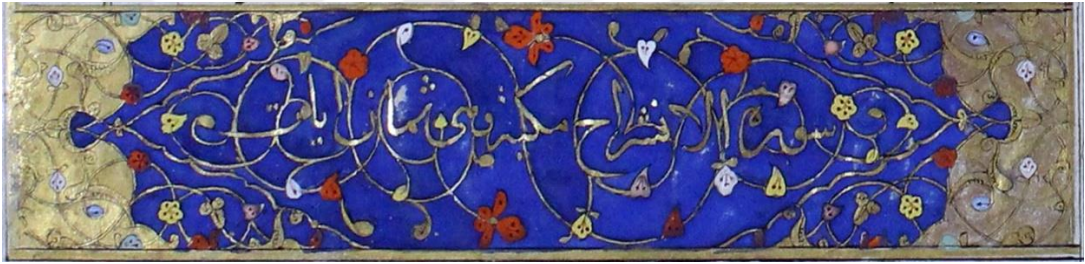 سورة الانشراح مكية وهى ثمان ايات